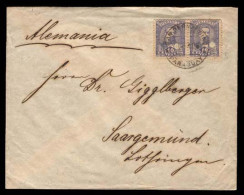 Alemania
Herrn Dr. Gigglberger
Saargemünd
Lothringen